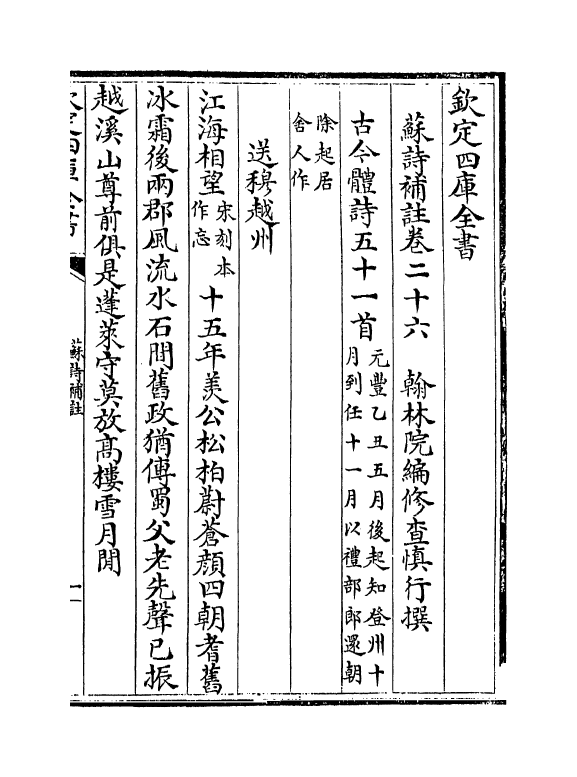 欽定四庫全書
蘇詩補註卷二十六　翰林院編修查慎行撰
古今體詩五十一首元豐乙丑五月後起知登州十
月到任十一月以禮部郎還朝
除起居
舍人作
送穆越州
江海相望宋刻本
作忘十五年羨公松柏蔚蒼顔四朝耆舊
冰霜後兩郡風流水石間舊政猶傳蜀父老先聲已振
越溪山尊前俱是蓬萊守莫放高樓雪月閒
欽定四庫全書
蘇詩補註
一